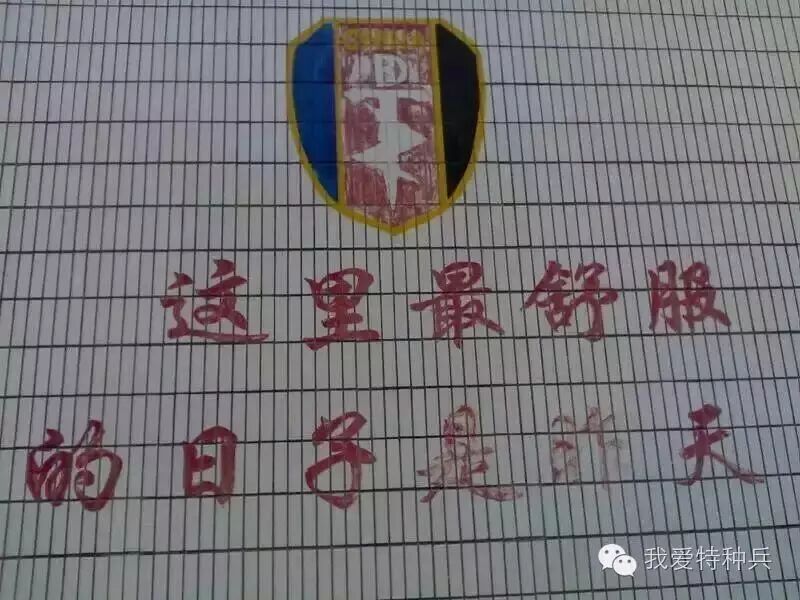 这里最舒服
的日子是昨天
我爱特种兵